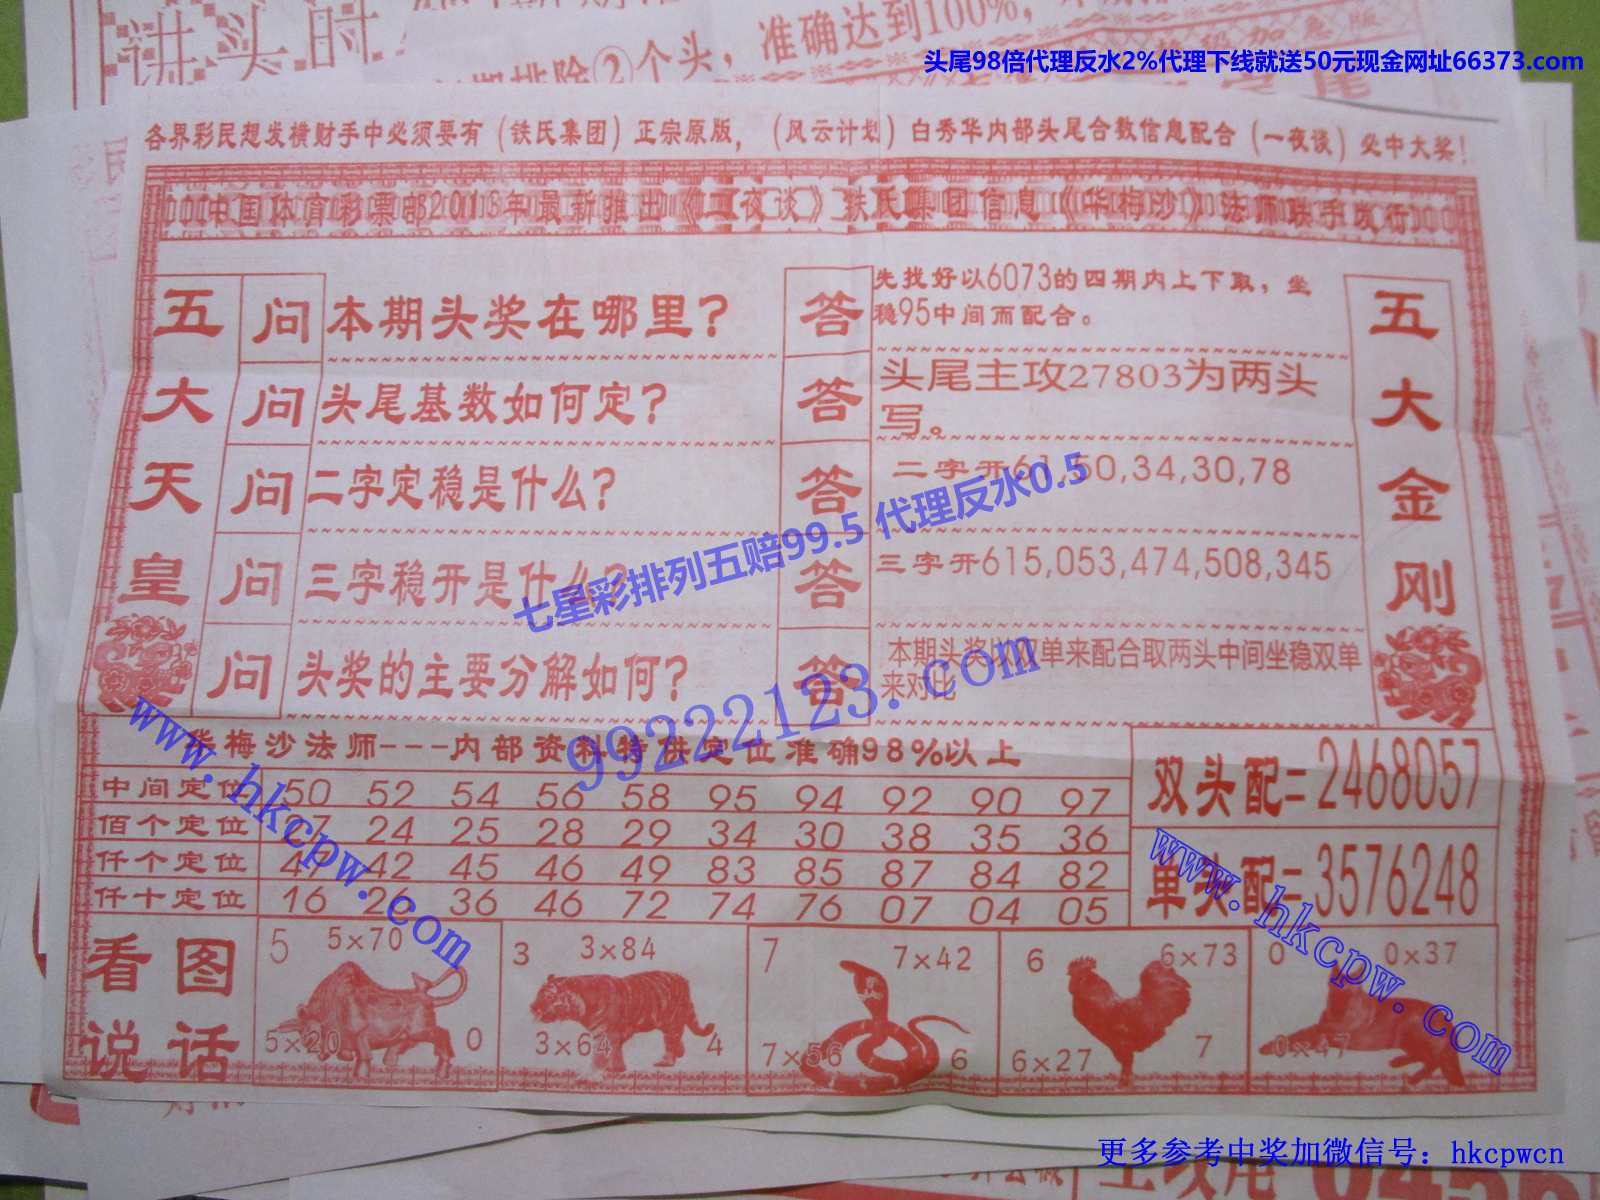 讲头时
排除②个头，准确达到100%，
头尾98倍代理反水2%代理下线就送50元现金网址66373.com
各界彩民想发横财手中必须要有（铁氏集团）正宗原版，（风云计划）白秀华内部头尾合数信息配合（一夜谈）必中大奖！
中国体育彩票部2016年最新推出《一夜谈》铁氏集团信息《华梅沙》法师联手发行
五大天皇
问 本期头奖在哪里？
答 先找好以6073的四期内上下取，坐稳95中间而配合。
问 头尾基数如何定？
答 头尾主攻27803为两头写。
问 二字定稳是什么？
答 二字开61,50,34,30,78
问 三字稳开是什么？
答 三字开615,053,474,508,345
问 头奖的主要分解如何？
答 本期头奖以双单来配合取两头中间坐稳双单来对比
五大金刚
七星彩排列五赔99.5 代理反水0.5
99222123.com
www.hkcpw.com
华梅沙法师---内部资料特供定位准确98%以上
中间定位 50 52 54 56 58 95 94 92 90 97
佰个定位 27 24 25 28 29 34 30 38 35 36
仟个定位 47 42 45 46 49 83 85 87 84 82
仟十定位 16 26 36 46 72 74 76 07 04 05
双头配=2468057
单头配=3576248
www.hkcpw.com
看图说话
5 5×70
5×20 0
3 3×84
3×64 4
7 7×42
7×56 6
6 6×73
6×27 7
0 0×37
0×47
更多参考中奖加微信号：hkcpwcn